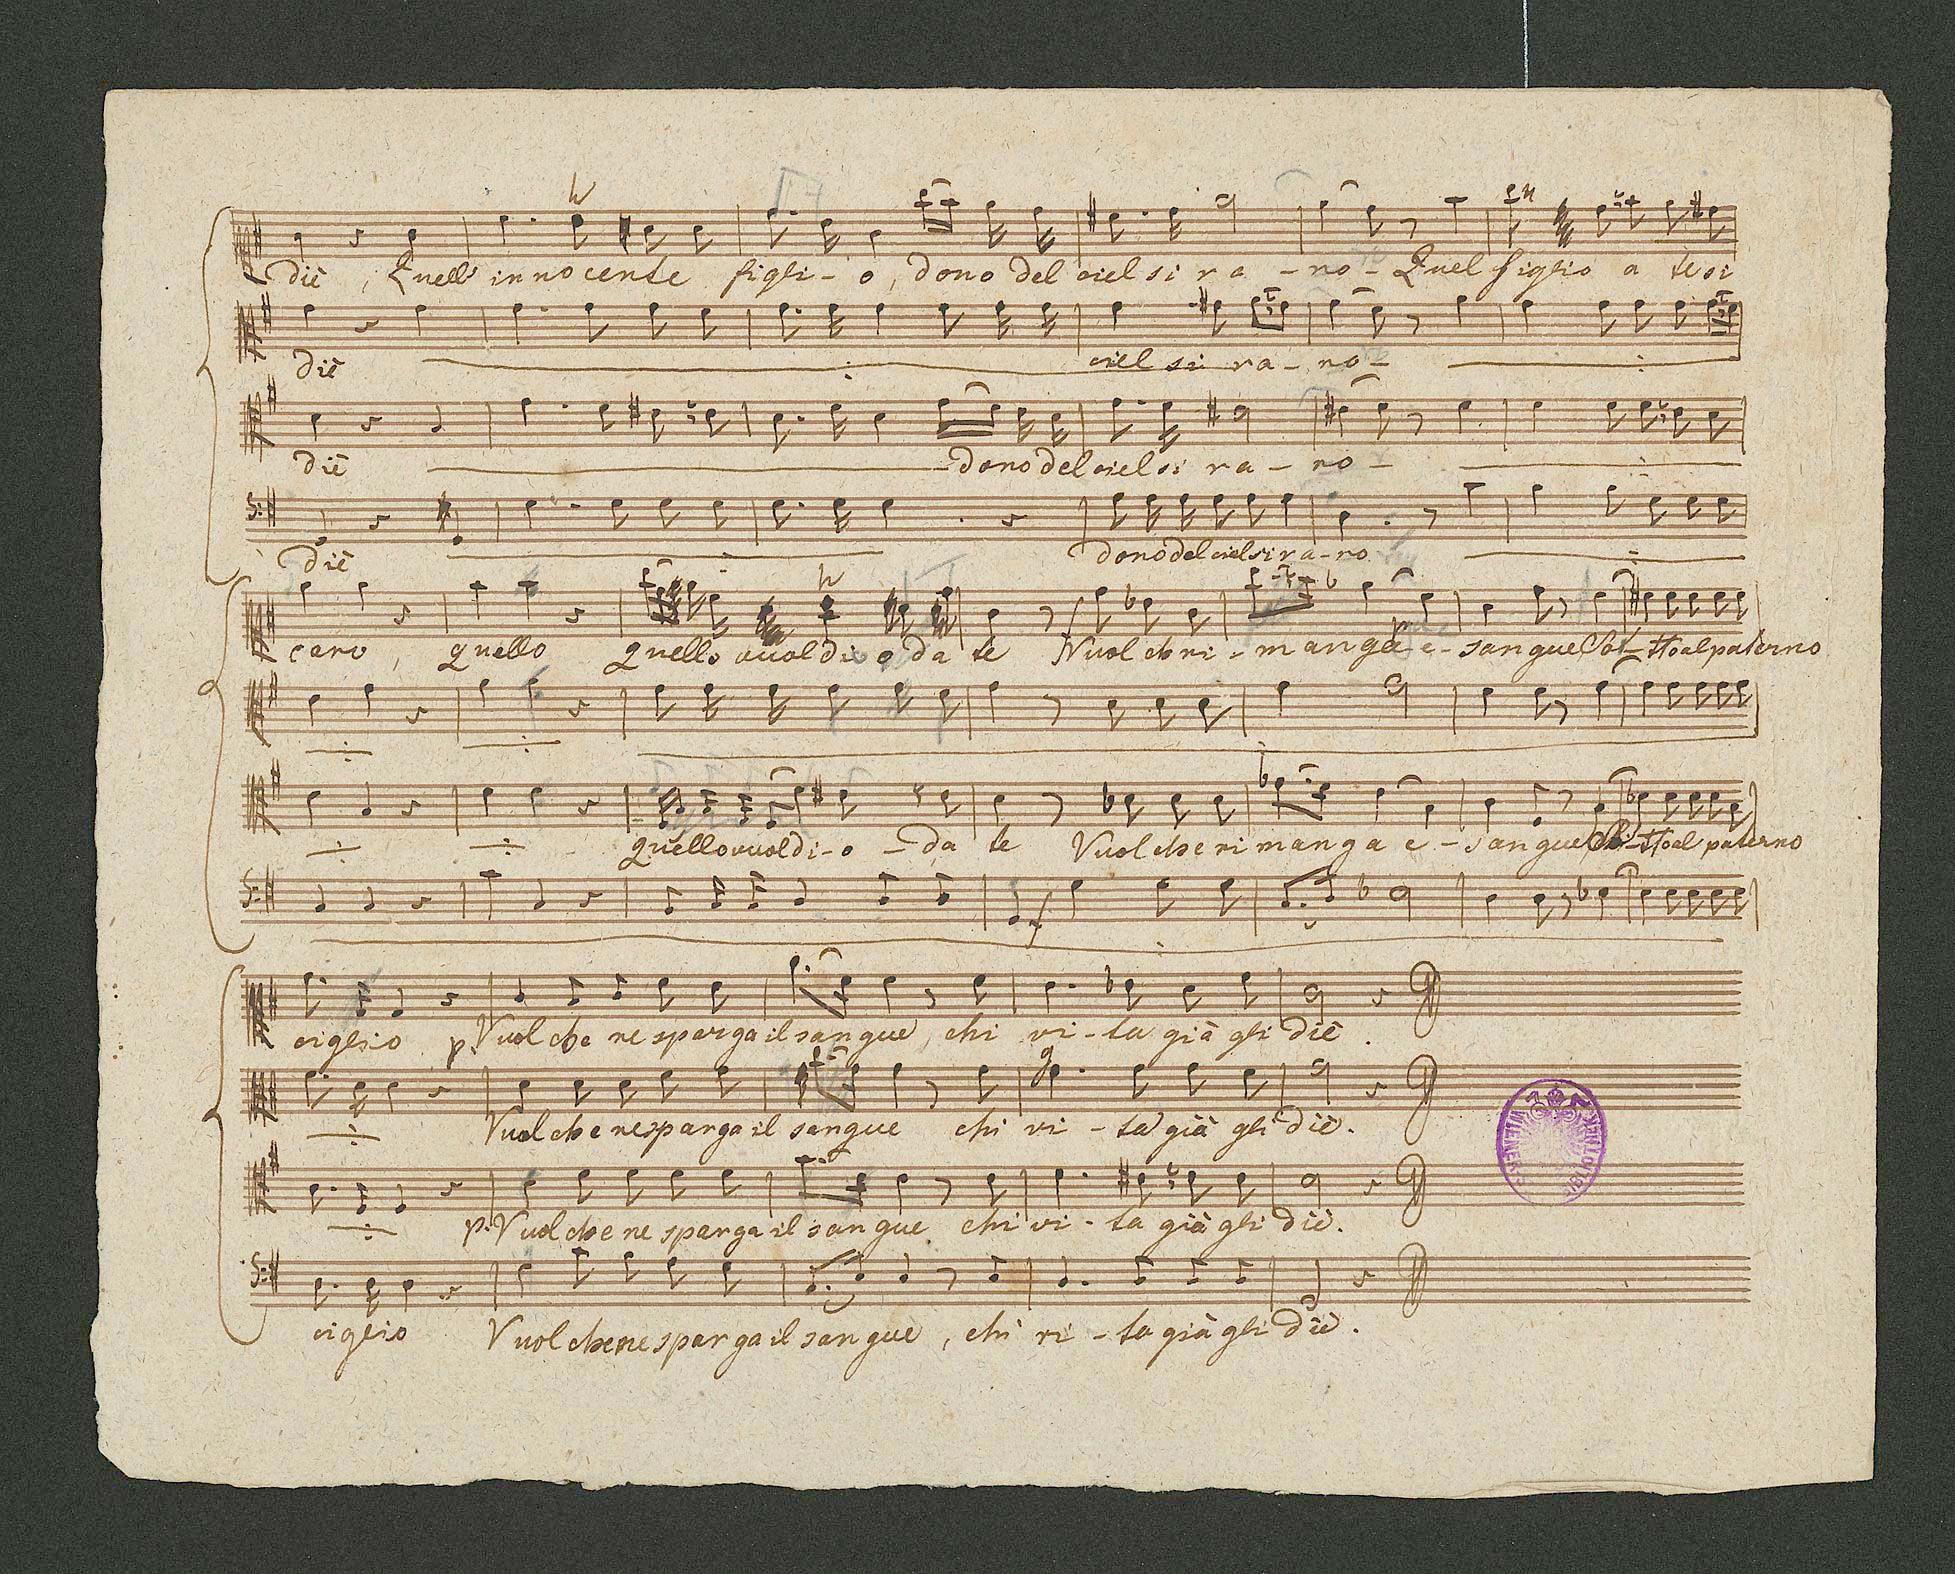 diè, Quell' innocente figli-o, dono del ciel si ra-no- Quel figlio a te si
diè ciel si ra-no-
diè dono del ciel si ra-no-
diè dono del ciel si ra-no
caro, quello quello vuol di o da te Vuol che ri-manga e-sangue Sot-tto al paterno
quello vuol di-o-da te Vuol che rimanga e-sangue tto al paterno
ciglio p. Vuol che ne sparga il sangue, chi vi-ta già gli diè.
Vuol che ne sparga il sangue chi vi-ta già gli diè.
p. Vuol che ne sparga il sangue chi vi-ta già gli diè.
ciglio Vuol che ne sparga il sangue, chi vi-ta già gli diè.
WIENER